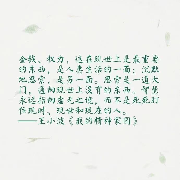 金钱、权力，这在现世上是最重要
的东西，是人类生活的一面；沉默
地思索，是另一面。思索是一道大
门，通向现世上没有的东西，智慧
永远指向虚无之境，而不是死死盯
住现时、现世和现在的人。
——王小波《我的精神家园》